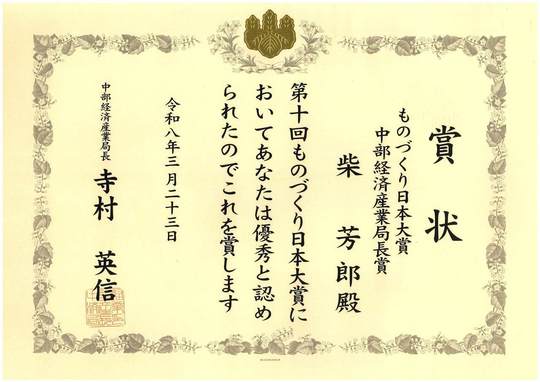 賞状
ものづくり日本大賞
中部経済産業局長賞
柴芳郎殿
第十回ものづくり日本大賞に
おいてあなたは優秀と認め
られたのでこれを賞します
令和八年三月二十三日
中部経済産業局長 寺村英信